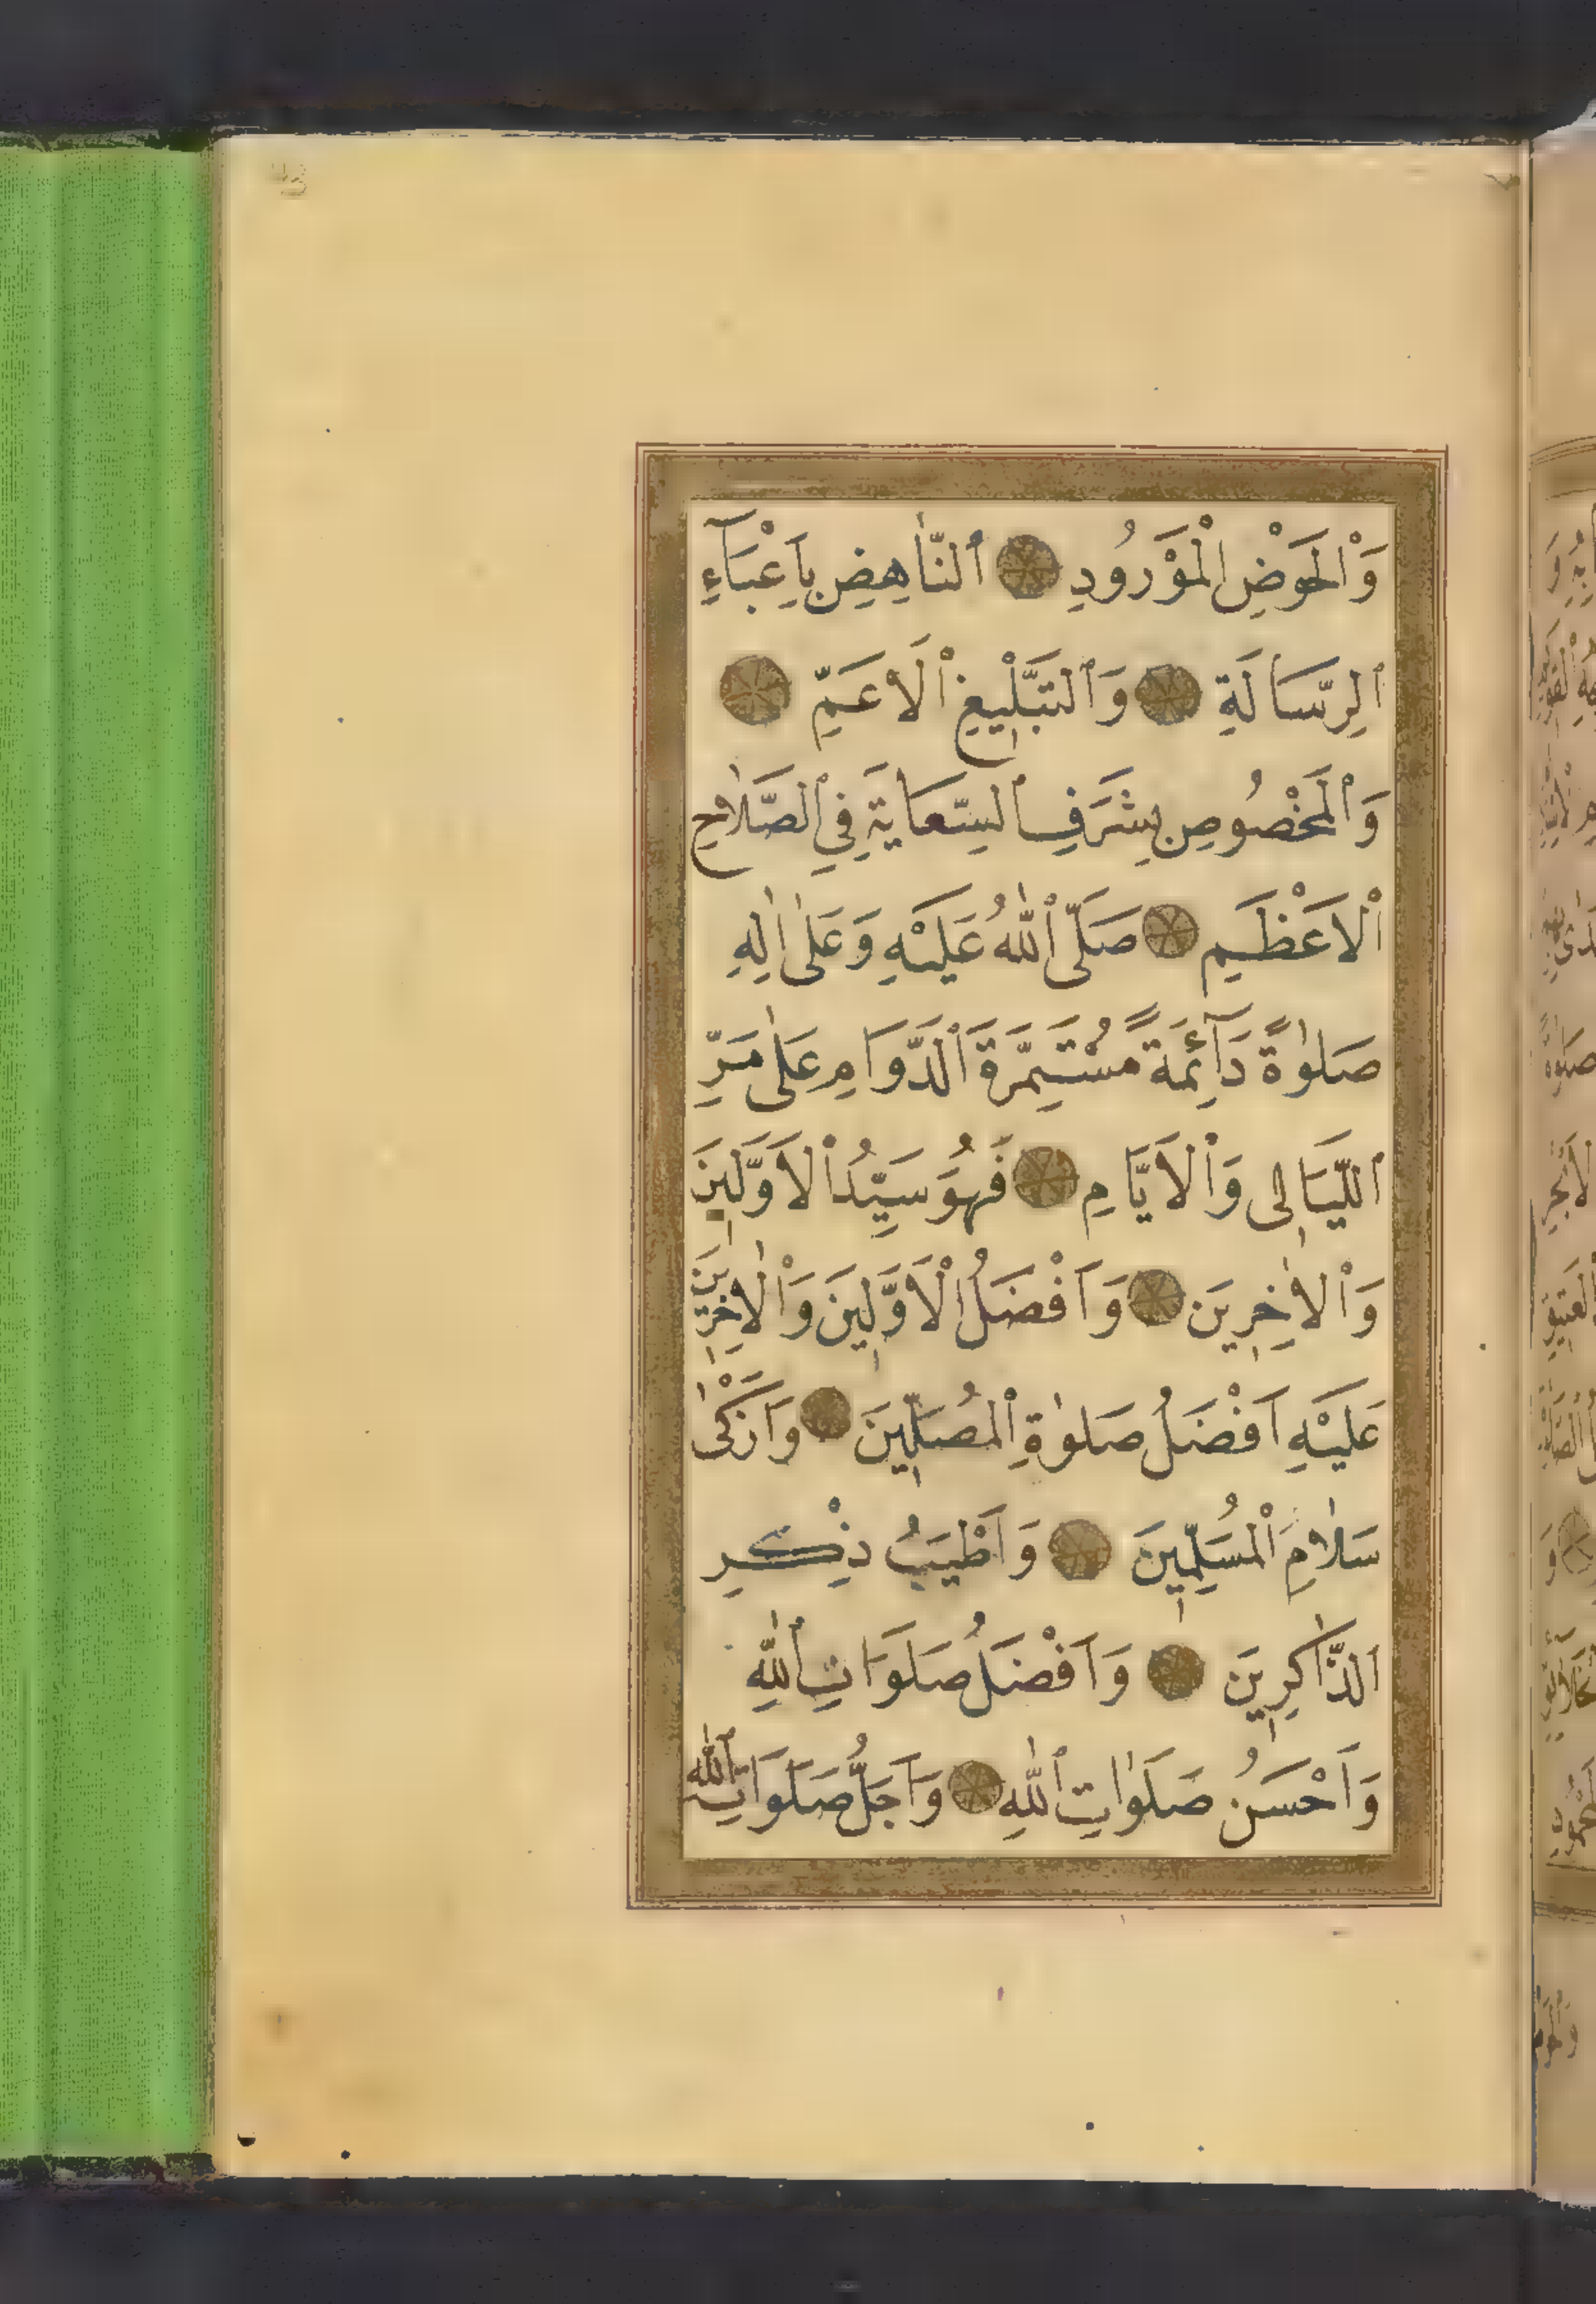 وَالْحَوْضِ الْمَوْرُودِ النَّاهِضِ بِاَعْبَآءِ
الرِّسَالَةِ وَالتَّبْلِيغِ الْاَعَمِّ
وَالْمَخْصُوصِ بِشَرَفِ السِّعَايَةِ فِي الصَّلَاحِ
الْاَعْظَمِ صَلَّى اللّٰهُ عَلَيْهِ وَعَلٰى اٰلِهِ
صَلٰوةً دَآئِمَةً مُسْتَمِرَّةَ الدَّوَامِ عَلٰى مَرِّ
اللَّيَالِى وَالْاَيَّامِ فَهُوَ سَيِّدُ الْاَوَّلِينَ
وَالْاٰخِرِينَ وَاَفْضَلُ الْاَوَّلِينَ وَالْاٰخِرِينَ
عَلَيْهِ اَفْضَلُ صَلٰوةِ الْمُصَلِّينَ وَاَزْكٰى
سَلَامِ الْمُسَلِّمِينَ وَاَطْيَبُ ذِكْرِ
الذَّاكِرِينَ وَاَفْضَلُ صَلَوَاتِ اللّٰهِ
وَاَحْسَنُ صَلَوَاتِ اللّٰهِ وَاَجَلُّ صَلَوَاتِ اللّٰهِ